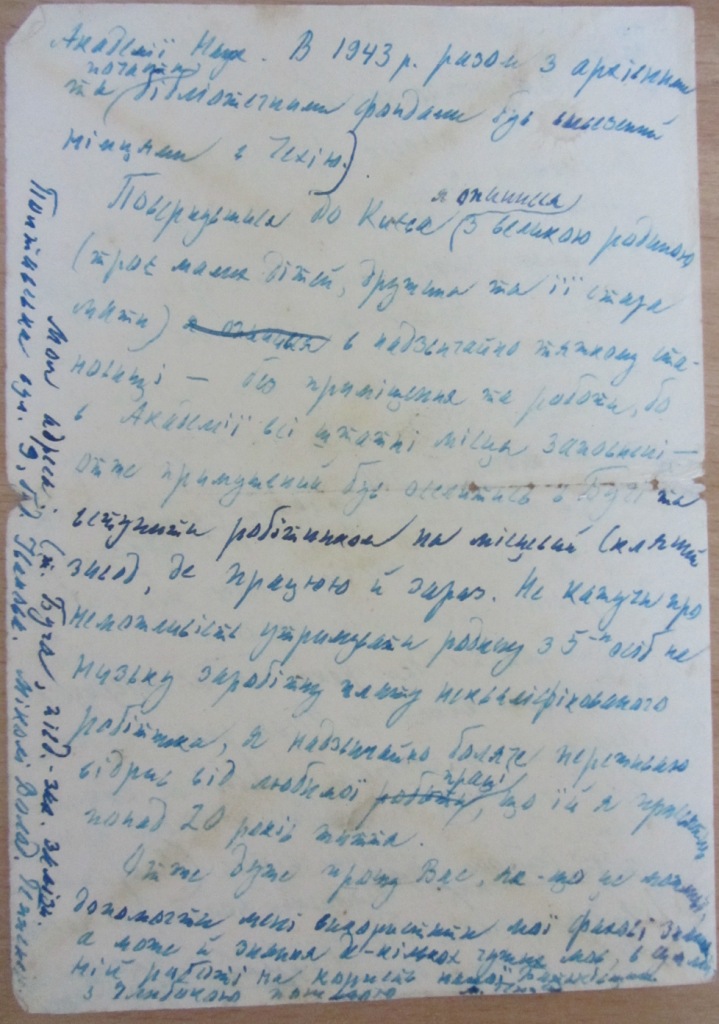 Академії Наук. В 1943 р. разом з архівними
почасти
та бібліотечними фондами був вивезений
німцями в Чехію.)
Повернувшись до Києва з великою родиною
я опинився
(троє малих дітей, дружина та її стара
мати) я опинився в надзвичайно тяжкому ста-
новищі — без приміщення та роботи, бо
в Академії всі штатні місця заповнені —
отже примушений був оселитись в Бучі та
вступити робітником на місцевий Скляний
завод, де працюю й зараз. Не кажучи про
неможливість утримувати родину з 5-ти осіб на
низьку заробітну плату некваліфікованого
робітника, я надзвичайно боляче переживаю
відрив від любимої роботи, що їй я присвятив
праці
понад 20 років життя.
Отже дуже прошу Вас, як-що це можливо,
допомогти мені використати мої фахові знання
а може й знання де-кількох чужих мов, в
ній роботі на користь нашої
з глибокою пошаною
Моя адреса: Ст. Буча, півд.-зах. заліз.
вул. 9, Мікола